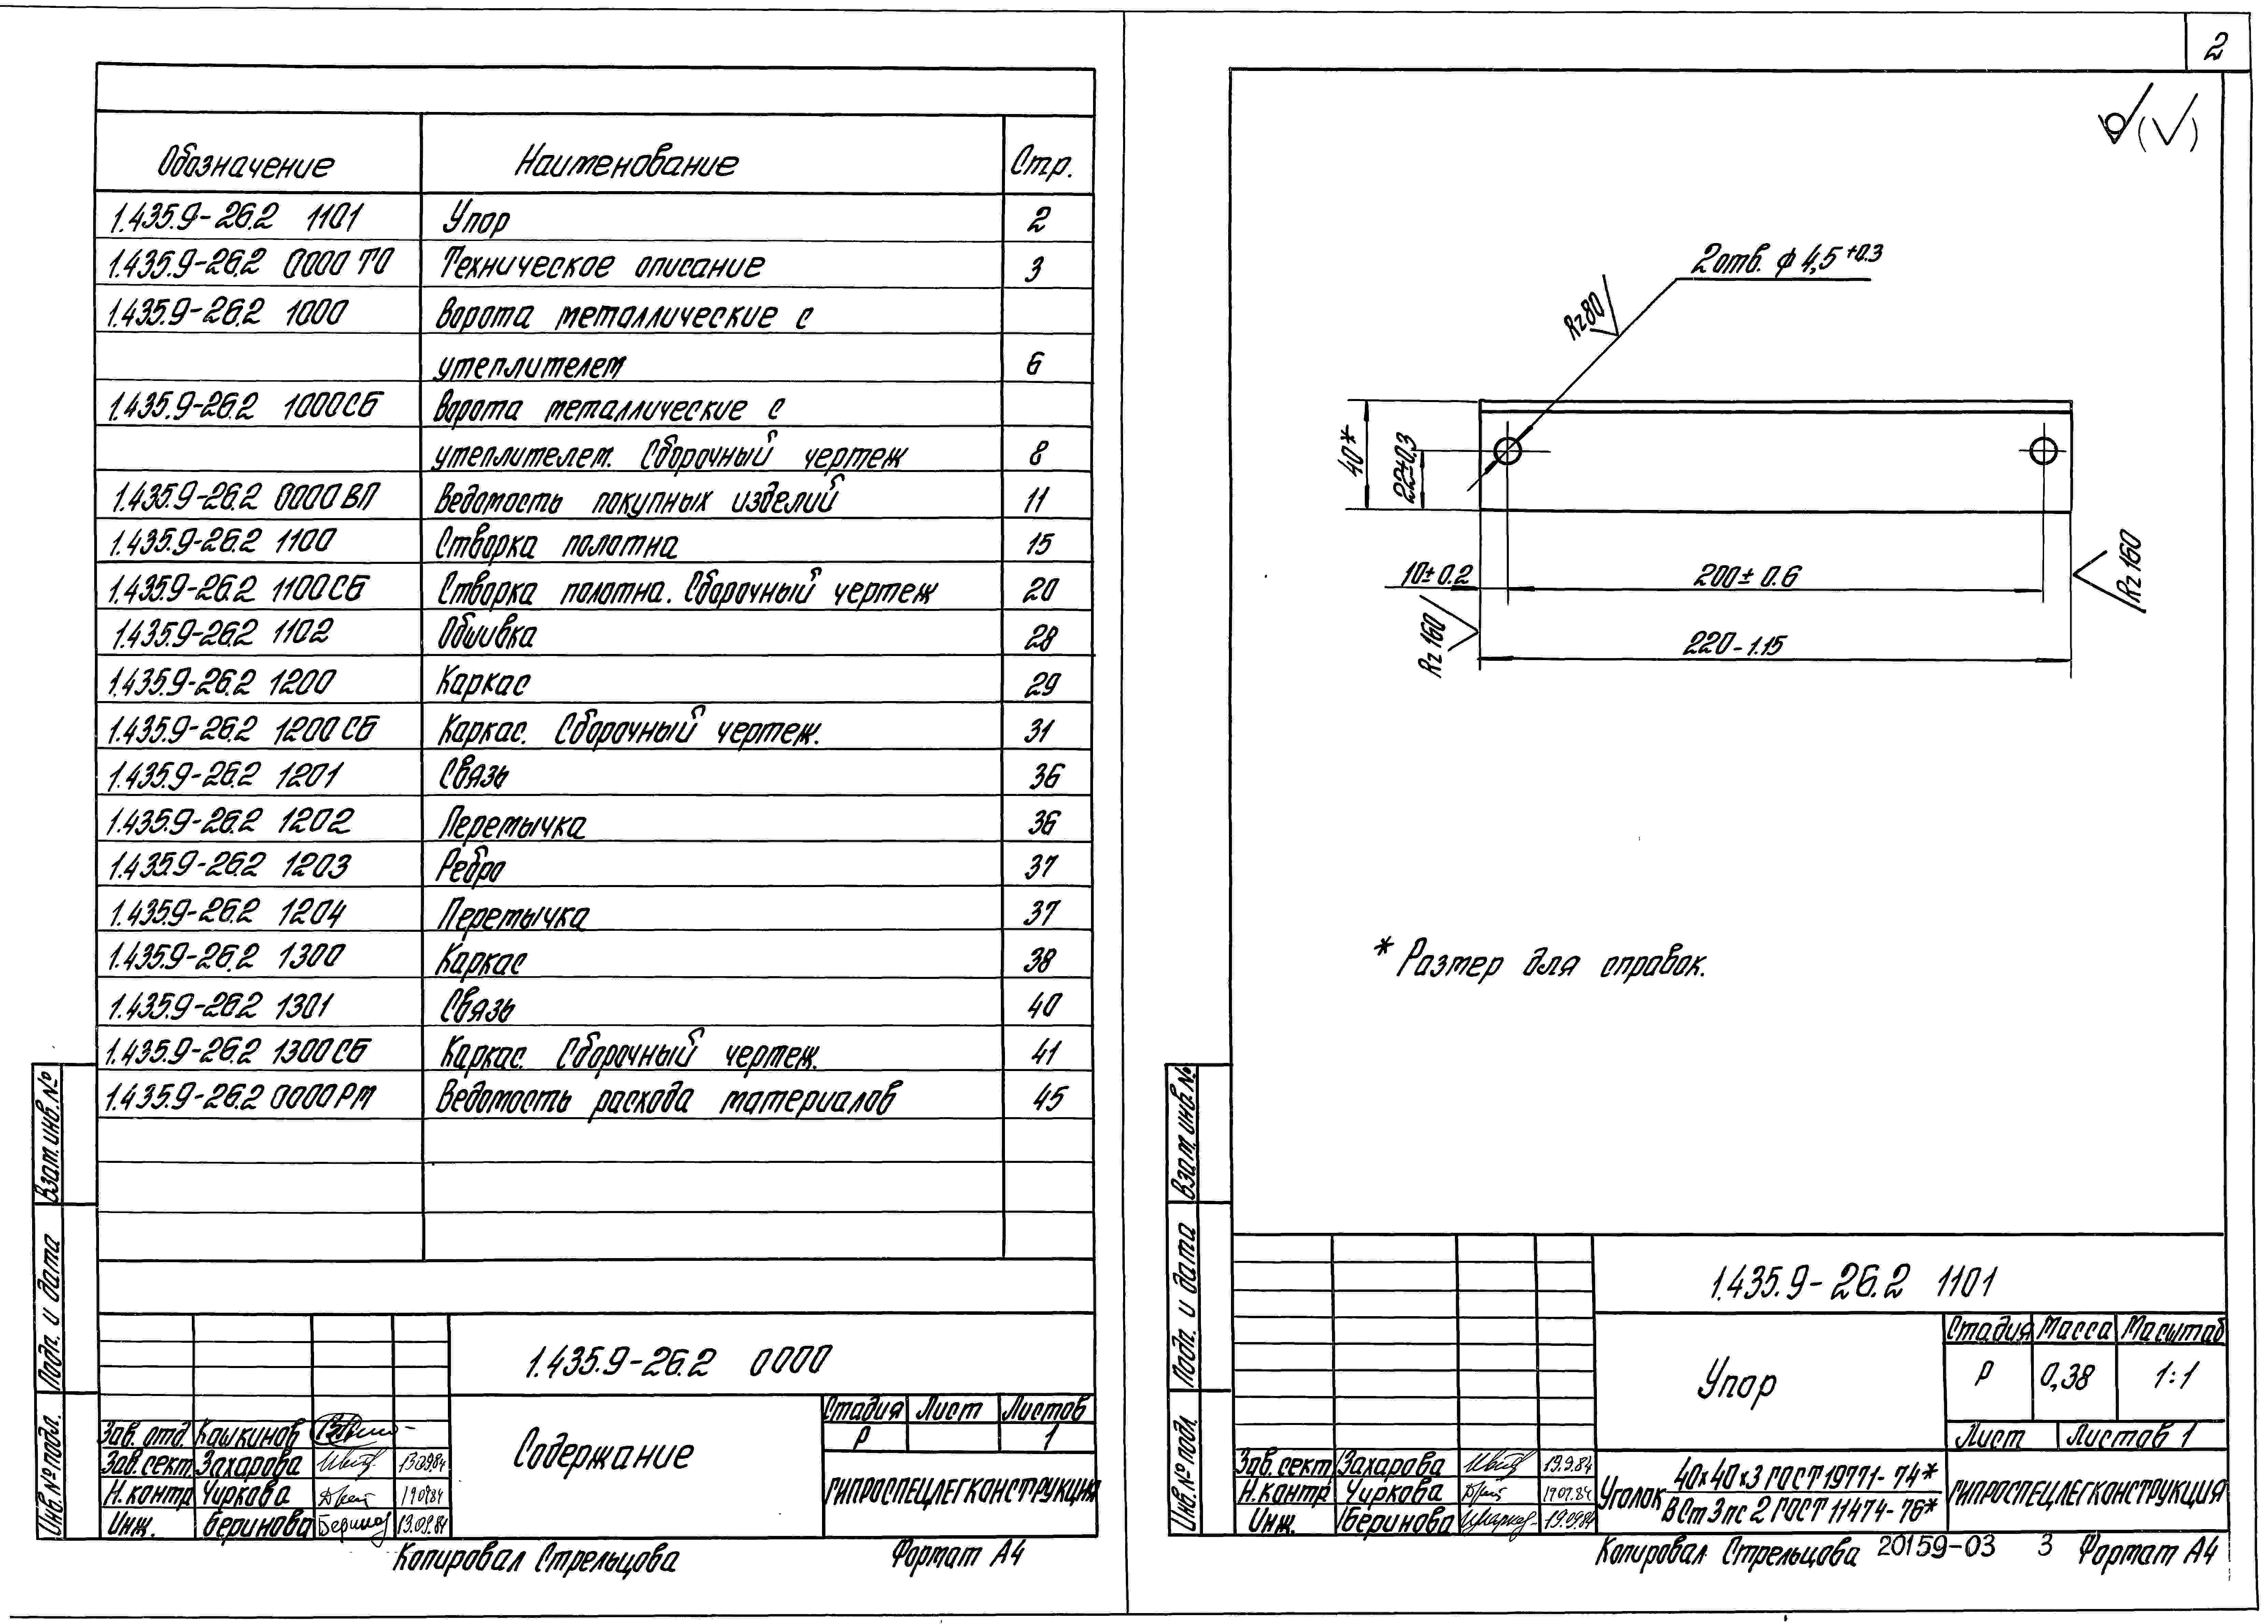 Обозначение Наименование Стр.
1.435.9-26.2 1101 Упор 2
1.435.9-26.2 0000 ТО Техническое описание 3
1.435.9-26.2 1000 Ворота металлические с
утеплителем 6
1.435.9-26.2 1000СБ Ворота металлические с
утеплителем. Сборочный чертеж 8
1.435.9-26.2 0000ВП Ведомость покупных изделий 11
1.435.9-26.2 1100 Створка полотна 15
1.435.9-26.2 1100СБ Створка полотна. Сборочный чертеж 20
1.435.9-26.2 1102 Обшивка 28
1.435.9-26.2 1200 Каркас 29
1.435.9-26.2 1200СБ Каркас. Сборочный чертеж. 31
1.435.9-26.2 1201 Связь 36
1.435.9-26.2 1202 Перемычка 36
1.435.9-26.2 1203 Ребро 37
1.435.9-26.2 1204 Перемычка 37
1.435.9-26.2 1300 Каркас 38
1.435.9-26.2 1301 Связь 40
1.435.9-26.2 1300СБ Каркас. Сборочный чертеж. 41
1.435.9-26.2 0000РМ Ведомость расхода материалов 45
Взам. инв. №
Подп. и дата
Инв. № подл.
1.435.9-26.2 0000
Содержание
Стадия Лист Листов
Р 1
ГИПРОСПЕЦЛЕГКОНСТРУКЦИЯ
Зав. отд. Кашкинов
Зав. сект. Захарова 13.09.84
Н. контр Чиркова 19.09.84
Инж. Беринова 13.09.84
Копировал Стрельцова Формат А4
2
2 отв. ф 4,5 +0.3
Rz80
40*
22±0,3
10±0.2
200±0.6
Rz 160
Rz 160
220-1.15
* Размер для справок.
Взам. инв. №
Подп. и дата
Инв. № подл.
1.435.9-26.2 1101
Упор
Стадия Масса Масштаб
Р 0,38 1:1
Лист Листов 1
Зав. сект Захарова 19.9.84
Н. контр Чиркова 19.07.84
Инж. Беринова 19.09.84
Уголок 40х40х3 ГОСТ 19771-74*
ВСт3пс2 ГОСТ 11474-76*
ГИПРОСПЕЦЛЕГКОНСТРУКЦИЯ
Копировал Стрельцова 20159-03 3 Формат А4